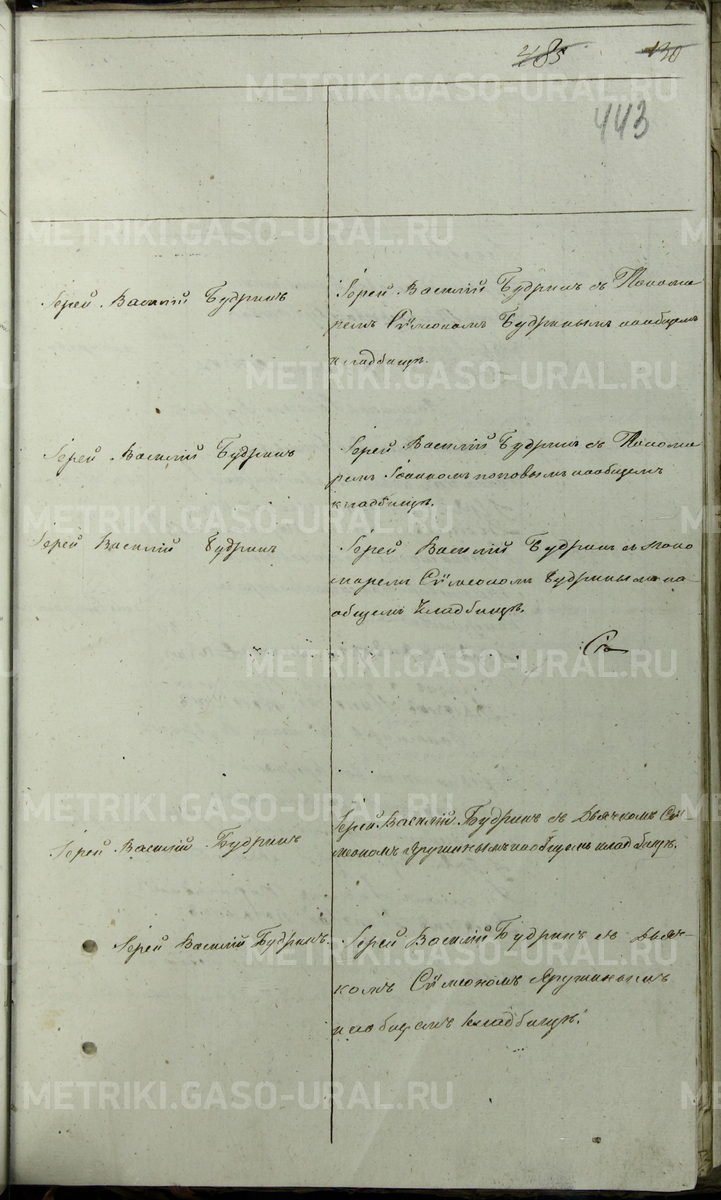 485 130
443
Іерей Василій Будринъ
Іерей Василій Будринъ съ Понома
ремъ Сѵмеономъ Будринымъ на общемъ
кладбищѣ.
Іерей Василій Будринъ
Іерей Василій Будринъ съ Понома
ремъ Іоанномъ поповымъ на общемъ
кладбищѣ.
Іерей Василій Будринъ
Іерей Василій Будринъ съ поно
маремъ Сѵмеономъ Будринымъ на
общемъ кладбищѣ.
Іерей Василій Будринъ
Іерей Василій Будринъ съ Дьячкомъ Сѵ
меономъ Ярушинымъ на общемъ кладбищѣ.
Іерей Василій Будринъ.
Іерей Василій Будринъ съ Дьяч-
комъ Сѵмеономъ Ярушинымъ
на общемъ кладбищѣ.
METRIKI.GASO-URAL.RU